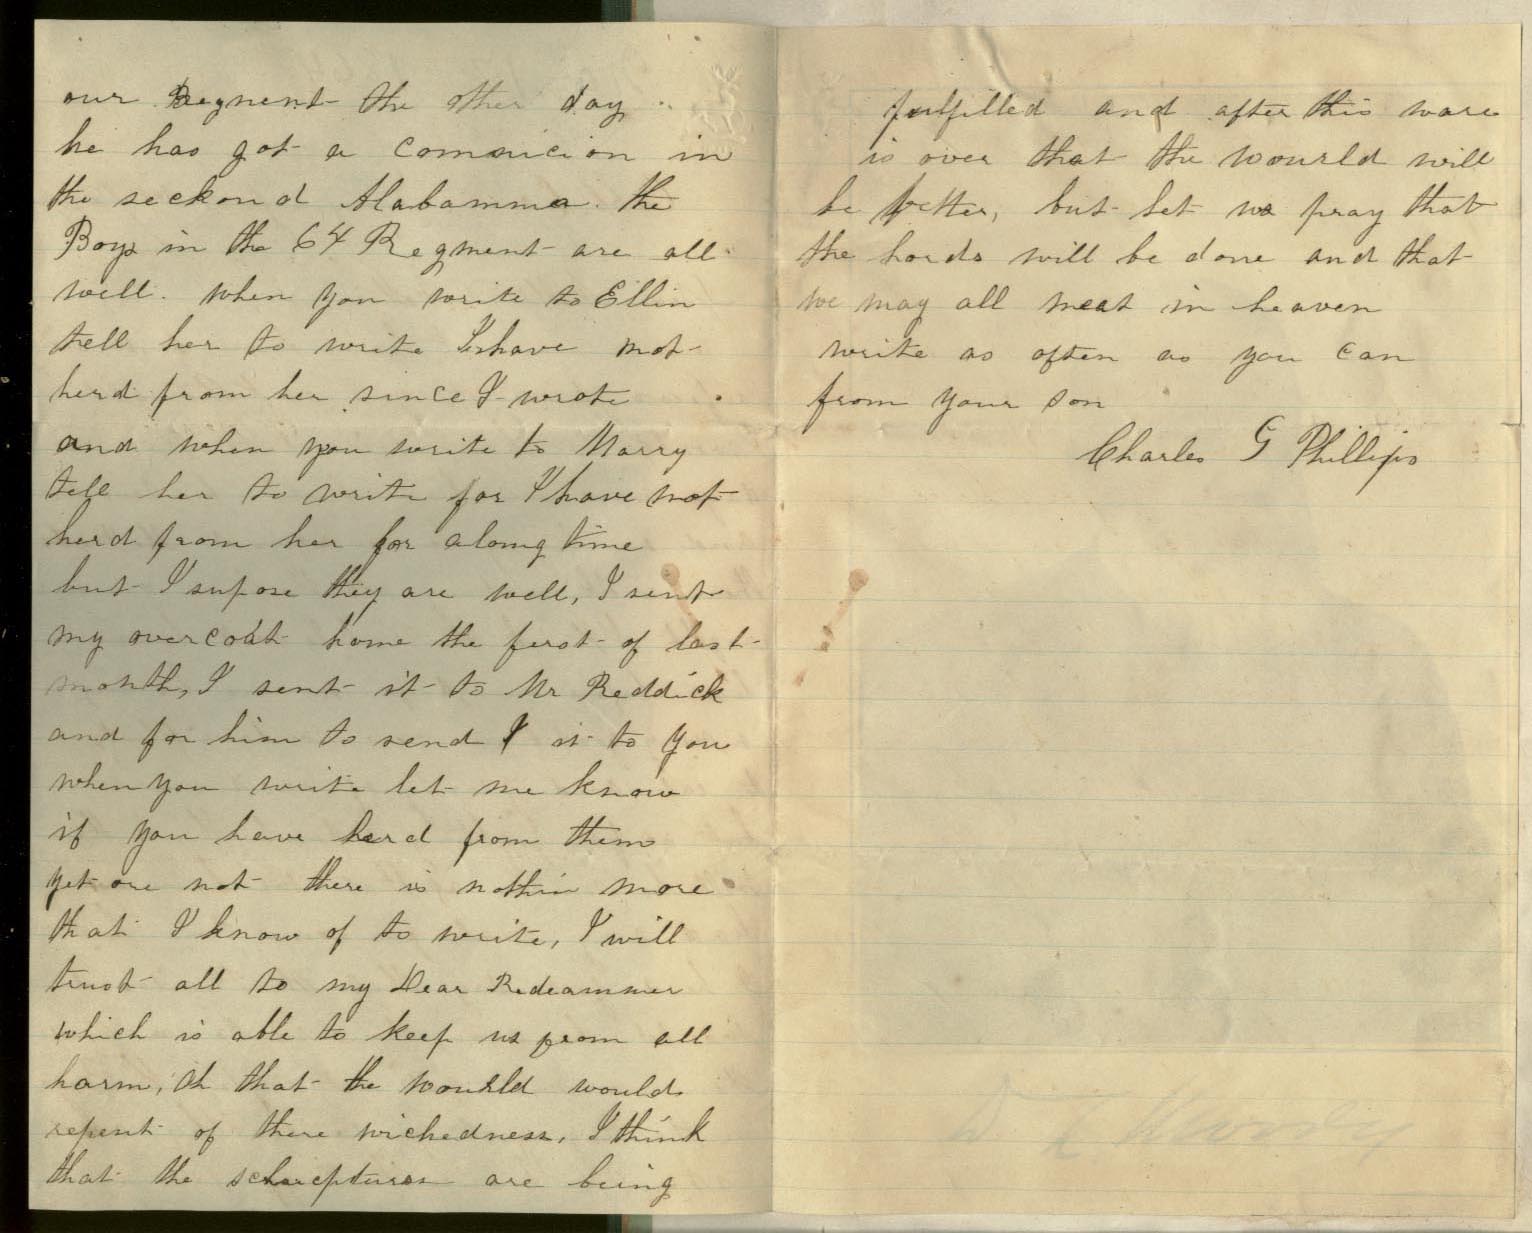 our Regment the other day
he has got a comicion in
the seckond Alabamma. the
Boys in the 64 Regment are all
well. when you write to Ellin
tell her to write I have not
herd from her since I wrote
and when you write to Marry
tell her to write for I have not
herd from her for along time
but I supose they are well, I sent
my overcoat home the ferst of last
month, I sent it to Mr Reddick
and for him to send it to you
when you write let me know
if you have herd from them
yet ore not there is nothin more
that I know of to write, I will
trust all to my Dear Redeammer
which is able to keep us from all
harm, Oh that the wourld would
repent of there wickedness, I think
that the schriptures are being
fulfilled and after this ware
is over that the wourld will
be better, but let us pray that
the lords will be done and that
we may all meat in heaven
write as often as you can
from your son
Charles G Phillips